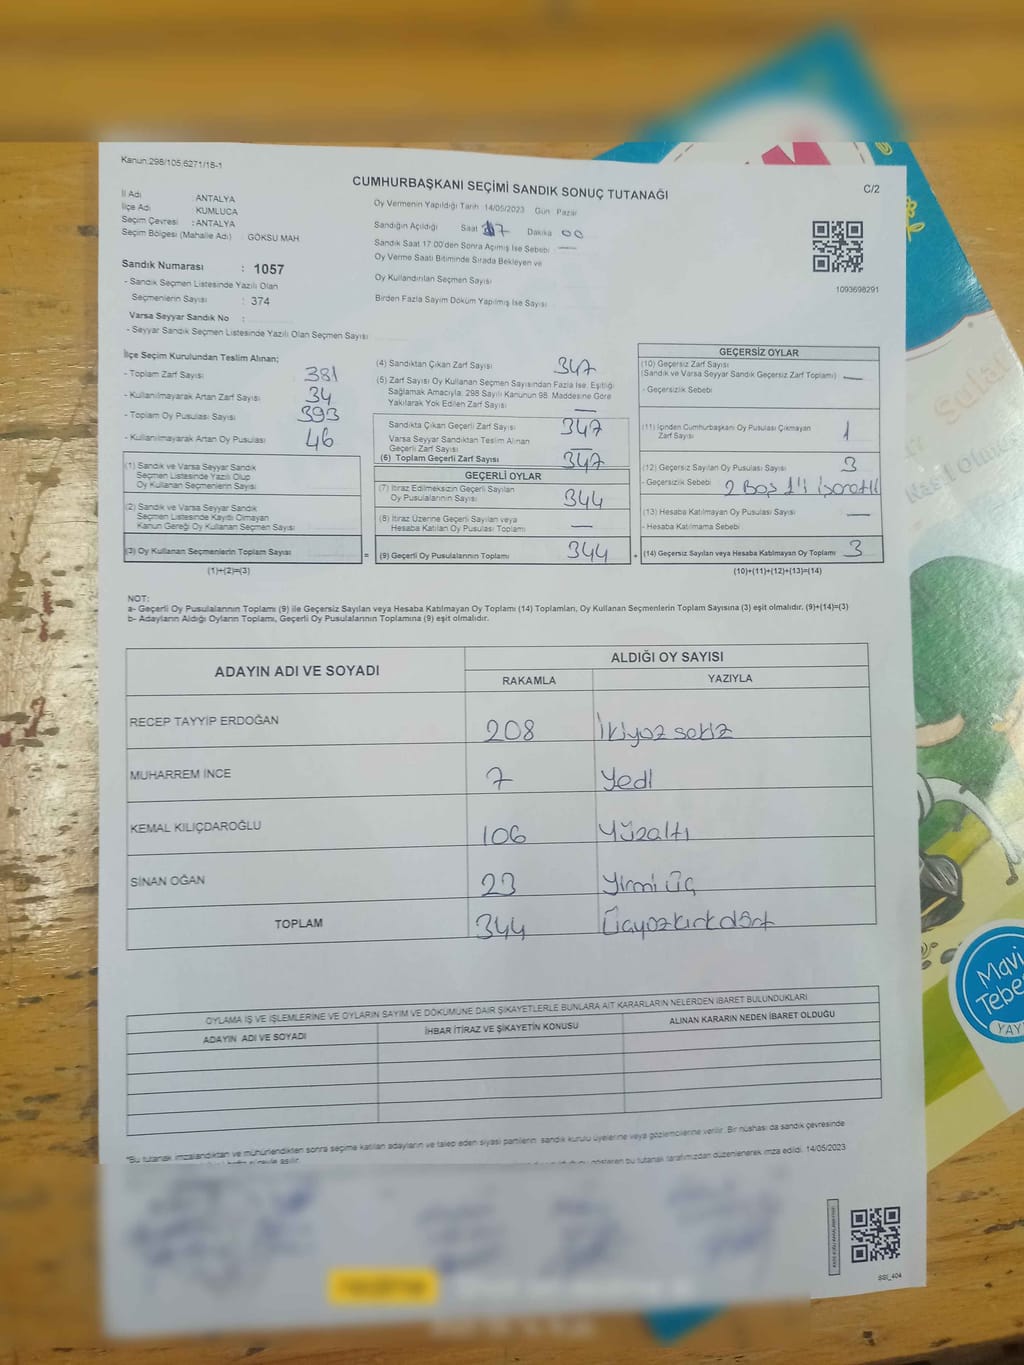 Kanun.298/105,6271/18-1
CUMHURBAŞKANI SEÇİMİ SANDIK SONUÇ TUTANAĞI
C/2
İl Adı : ANTALYA
İlçe Adı : KUMLUCA
Seçim Çevresi : ANTALYA
Seçim Bölgesi (Mahalle Adı) : GÖKSU MAH
Sandık Numarası : 1057
- Sandık Seçmen Listesinde Yazılı Olan
Seçmenlerin Sayısı : 374
Varsa Seyyar Sandık No :
- Seyyar Sandık Seçmen Listesinde Yazılı Olan Seçmen Sayısı
Oy Vermenin Yapıldığı Tarih 14/05/2023 Gün Pazar
Sandığın Açıldığı Saat 17 Dakika 00
Sandık Saat 17.00'den Sonra Açılmış İse Sebebi —
Oy Verme Saati Bitiminde Sırada Bekleyen ve
Oy Kullandırılan Seçmen Sayısı
Birden Fazla Sayım Döküm Yapılmış İse Sayısı
1093698291
İlçe Seçim Kurulundan Teslim Alınan:
- Toplam Zarf Sayısı 381
- Kullanılmayarak Artan Zarf Sayısı 34
- Toplam Oy Pusulası Sayısı 393
- Kullanılmayarak Artan Oy Pusulası 46
(1) Sandık ve Varsa Seyyar Sandık
Seçmen Listesinde Yazılı Olup
Oy Kullanan Seçmenlerin Sayısı
(2) Sandık ve Varsa Seyyar Sandık
Seçmen Listesinde Kayıtlı Olmayan
Kanun Gereği Oy Kullanan Seçmen Sayısı
(3) Oy Kullanan Seçmenlerin Toplam Sayısı
=
(1)+(2)=(3)
(4) Sandıktan Çıkan Zarf Sayısı 347
(5) Zarf Sayısı Oy Kullanan Seçmen Sayısından Fazla İse, Eşitliği
Sağlamak Amacıyla; 298 Sayılı Kanunun 98. Maddesine Göre
Yakılarak Yok Edilen Zarf Sayısı —
Sandıkta Çıkan Geçerli Zarf Sayısı 347
Varsa Seyyar Sandıktan Teslim Alınan
Geçerli Zarf Sayısı —
(6) Toplam Geçerli Zarf Sayısı 347
GEÇERLİ OYLAR
(7) İtiraz Edilmeksizin Geçerli Sayılan
Oy Pusulalarının Sayısı 344
(8) İtiraz Üzerine Geçerli Sayılan veya
Hesaba Katılan Oy Pusulası Toplamı —
(9) Geçerli Oy Pusulalarının Toplamı 344
+
GEÇERSİZ OYLAR
(10) Geçersiz Zarf Sayısı
(Sandık ve Varsa Seyyar Sandık Geçersiz Zarf Toplamı) —
- Geçersizlik Sebebi
(11) İçinden Cumhurbaşkanı Oy Pusulası Çıkmayan
Zarf Sayısı 1
(12) Geçersiz Sayılan Oy Pusulası Sayısı 3
- Geçersizlik Sebebi 2 Boş 1'i işaretli
(13) Hesaba Katılmayan Oy Pusulası Sayısı —
- Hesaba Katılmama Sebebi
(14) Geçersiz Sayılan veya Hesaba Katılmayan Oy Toplamı 3
(10)+(11)+(12)+(13)=(14)
NOT:
a- Geçerli Oy Pusulalarının Toplamı (9) ile Geçersiz Sayılan veya Hesaba Katılmayan Oy Toplamı (14) Toplamları, Oy Kullanan Seçmenlerin Toplam Sayısına (3) eşit olmalıdır. (9)+(14)=(3)
b- Adayların Aldığı Oyların Toplamı, Geçerli Oy Pusulalarının Toplamına (9) eşit olmalıdır.
ADAYIN ADI VE SOYADI
ALDIĞI OY SAYISI
RAKAMLA YAZIYLA
RECEP TAYYİP ERDOĞAN 208 İkiyüz sekiz
MUHARREM İNCE 7 Yedi
KEMAL KILIÇDAROĞLU 106 Yüzaltı
SİNAN OĞAN 23 Yirmi üç
TOPLAM 344 Üçyüzkırkdört
OYLAMA İŞ VE İŞLEMLERİNE VE OYLARIN SAYIM VE DÖKÜMÜNE DAİR ŞİKAYETLERLE BUNLARA AİT KARARLARIN NELERDEN İBARET BULUNDUKLARI
ADAYIN ADI VE SOYADI
İHBAR İTİRAZ VE ŞİKAYETİN KONUSU
ALINAN KARARIN NEDEN İBARET OLDUĞU
*Bu tutanak imzalandıktan ve mühürlendikten sonra seçime katılan adayların ve talep eden siyasi partilerin sandık kurulu üyelerine veya gözlemcilerine verilir. Bir nüshası da sandık çevresinde
bu tutanak tarafımızdan düzenlenerek imza edildi. 14/05/2023
SSI_404
Mavi
Tebe
YAY